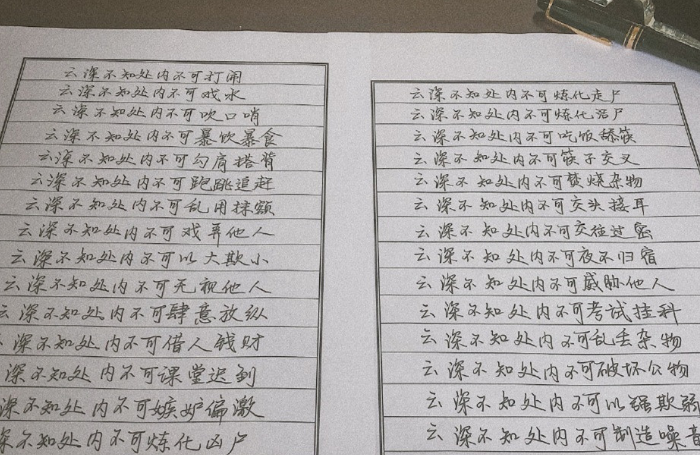 云深不知处内不可打闹
云深不知处内不可戏水
云深不知处内不可吹口哨
云深不知处内不可暴饮暴食
云深不知处内不可勾肩搭背
云深不知处内不可跑跳追赶
云深不知处内不可乱用抹额
云深不知处内不可戏弄他人
云深不知处内不可以大欺小
云深不知处内不可无视他人
云深不知处内不可肆意放纵
云深不知处内不可借人钱财
深不知处内不可课堂迟到
深不知处内不可嫉妒偏激
深不知处内不可炼化凶尸
云深不知处内不可炼化走尸
云深不知处内不可炼化活尸
云深不知处内不可吃饭舔筷
云深不知处内不可筷子交叉
云深不知处内不可焚烧杂物
云深不知处内不可交头接耳
云深不知处内不可交往过密
云深不知处内不可夜不归宿
云深不知处内不可威胁他人
云深不知处内不可考试挂科
云深不知处内不可乱丢杂物
云深不知处内不可破坏公物
云深不知处内不可以强欺弱
云深不知处内不可制造噪音